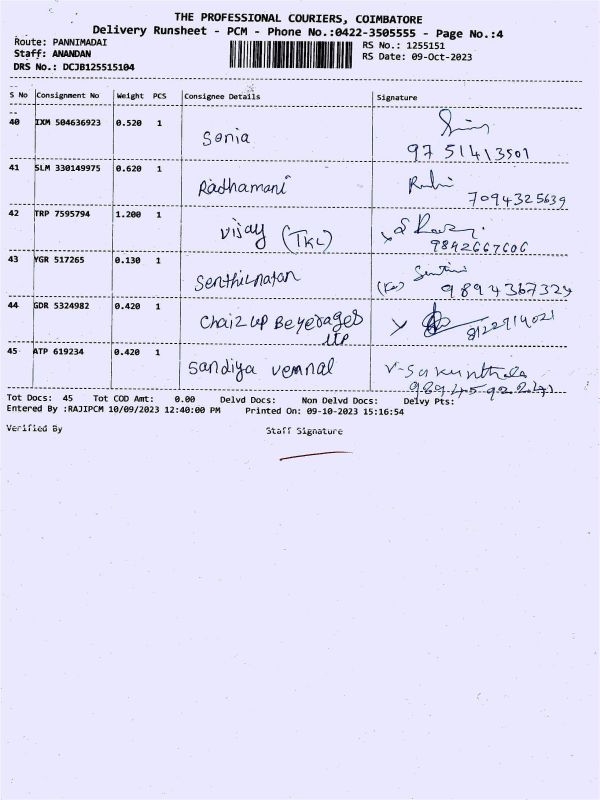 THE PROFESSIONAL COURIERS, COIMBATORE
Delivery Runsheet - PCM - Phone No.:0422-3505555 - Page No.:4
Route: PANNIMADAI RS No.: 1255151
Staff: ANANDAN RS Date: 09-Oct-2023
DRS No.: DCJB125515104
S No Consignment No Weight PCS Consignee Details Signature
40 IXM 504636923 0.520 1 Sonia
9751413501
41 SLM 330149975 0.620 1 Radhamani
7094325639
42 TRP 7595794 1.200 1 Vijay (TKL)
9842667606
43 YGR 517265 0.130 1 Senthilnatan
9894367324
44 GDR 5324982 0.420 1 Chaizup Beverages
LLP 8122914021
45 ATP 619234 0.420 1 Sandiya vennal V-Sakunthala
9894592241
Tot Docs: 45 Tot COD Amt: 0.00 Delvd Docs: Non Delvd Docs: Delvy Pts:
Entered By :RAJIPCM 10/09/2023 12:40:00 PM Printed On: 09-10-2023 15:16:54
Verified By Staff Signature